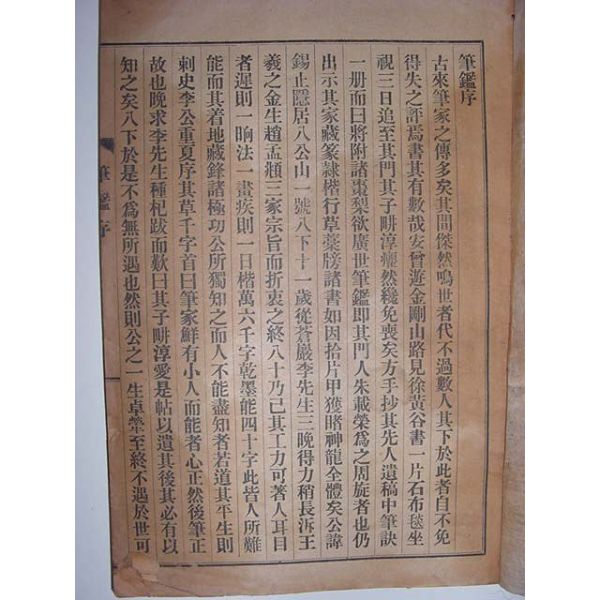 筆鑑序
古來筆家之傳多矣其間傑然鳴世者代不過數人其下於此者自不免
得失之評焉書其有數哉安曾遊金剛山路見徐黃谷書一片石布毯坐
視三日追至其門其子畊淳癯然纔免喪矣方手抄其先人遺稿中筆訣
一册而曰將附諸棗梨欲廣世筆鑑卽其門人朱載榮爲之周旋者也仍
出示其家藏篆隷楷行草藁牓諸書如因拾片甲獲睹神龍全體矣公諱
錫止隱居八公山一號八下十一歲從蒼巖李先生三晚得力稍長泝王
羲之金生趙孟頫三家宗旨而折衷之終八十乃已其工力可著人耳目
者遲則一晌法一畫疾則一日楷萬六千字乾墨能四十字此皆人所難
能而其着地藏鋒諸極功公所獨知之而人不能盡知者若道其平生則
刺史李公重夏序其草千字首曰筆家鮮有小人而能者心正然後筆正
故也晚求李先生種杞跋而歎曰其子畊淳愛是帖以遺其後其必有以
知之矣八下於是不爲無所遇也然則公之一生卓犖至終不遇於世可
筆鑑序